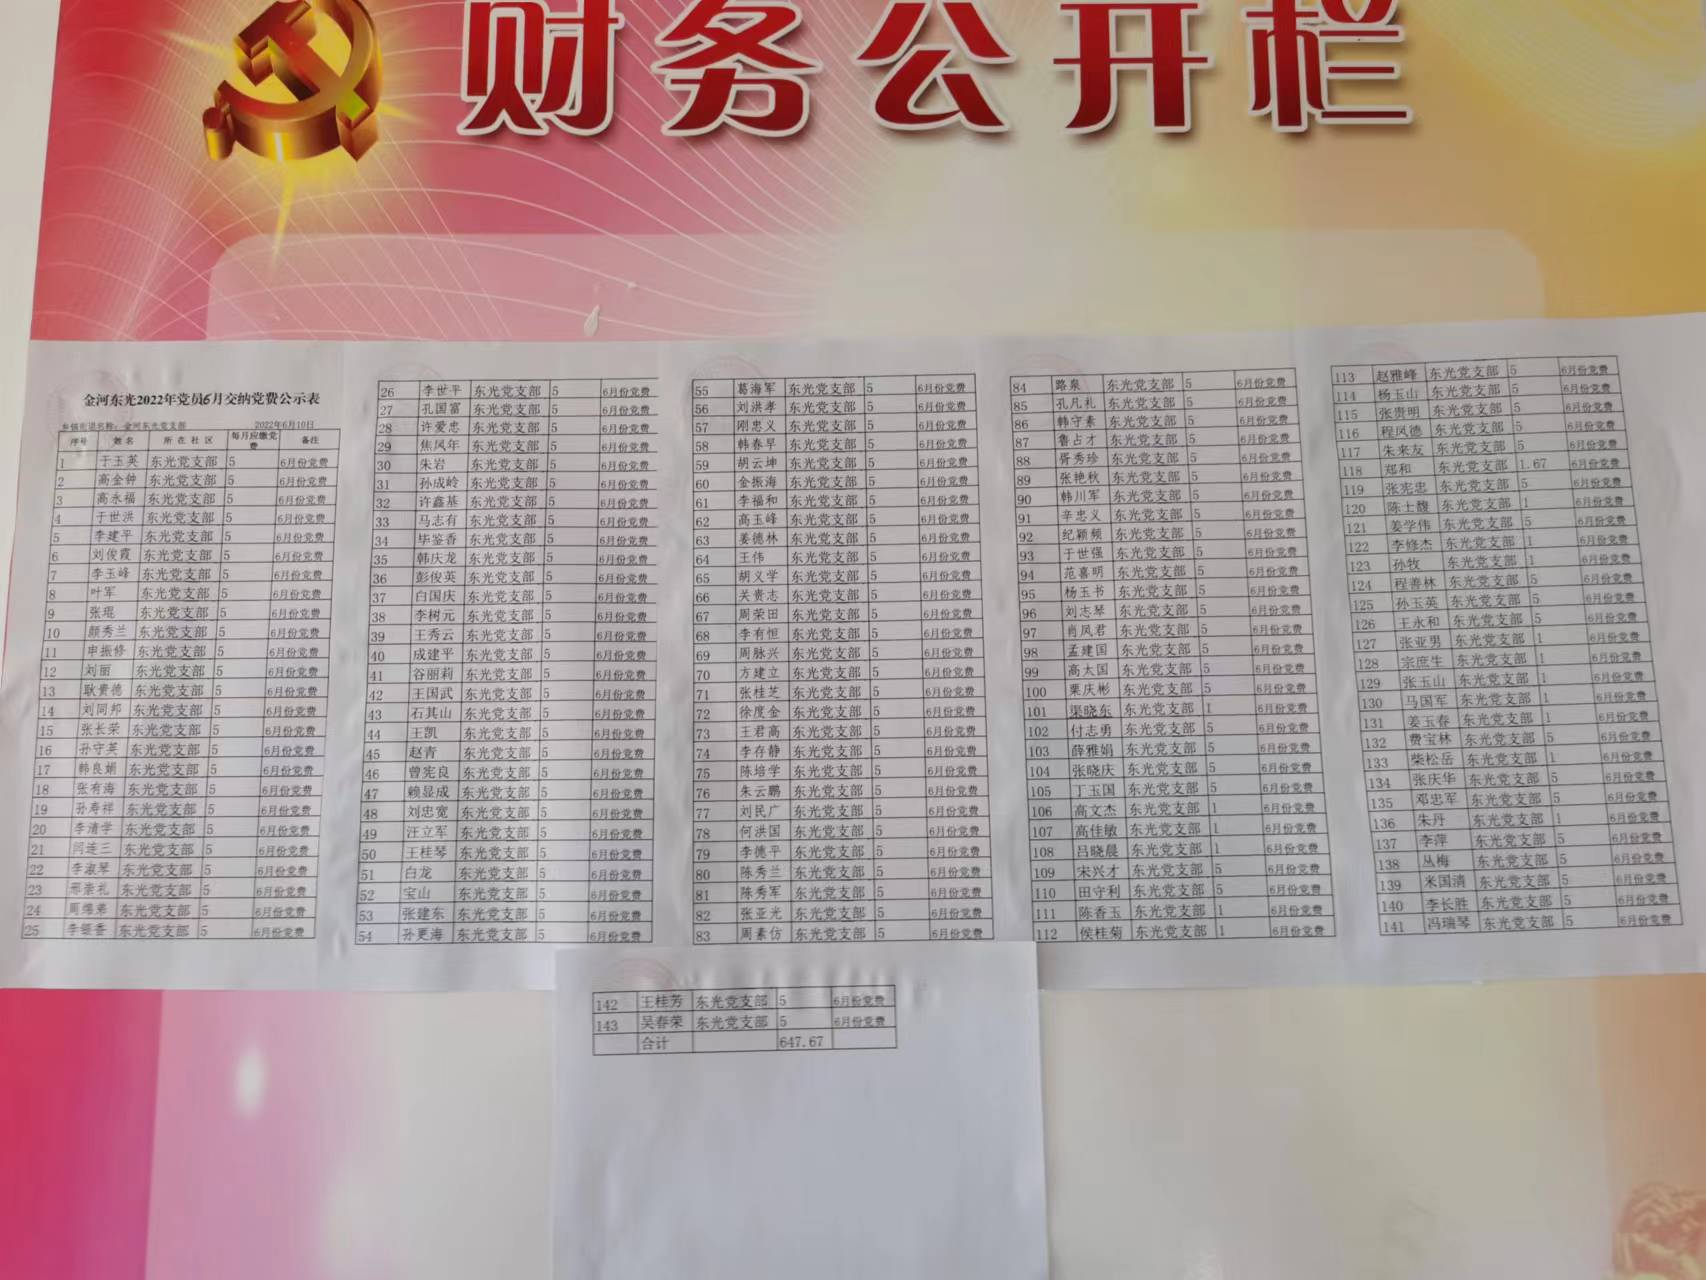 财务公开栏
金河东光2022年党员6月交纳党费公示表
乡镇街道名称: 金河东光党支部 2022年6月10日
序号 姓名 所在社区 每月应缴党费 备注
1 于玉英 东光党支部 5 6月份党费
2 高金钟 东光党支部 5 6月份党费
3 高永福 东光党支部 5 6月份党费
4 于世洪 东光党支部 5 6月份党费
5 李建平 东光党支部 5 6月份党费
6 刘俊霞 东光党支部 5 6月份党费
7 李玉峰 东光党支部 5 6月份党费
8 叶军 东光党支部 5 6月份党费
9 张琨 东光党支部 5 6月份党费
10 颜秀兰 东光党支部 5 6月份党费
11 申振修 东光党支部 5 6月份党费
12 刘丽 东光党支部 5 6月份党费
13 耿贵德 东光党支部 5 6月份党费
14 刘同邦 东光党支部 5 6月份党费
15 张长荣 东光党支部 5 6月份党费
16 孙守英 东光党支部 5 6月份党费
17 韩良娟 东光党支部 5 6月份党费
18 张有海 东光党支部 5 6月份党费
19 孙寿祥 东光党支部 5 6月份党费
20 李清学 东光党支部 5 6月份党费
21 闫连三 东光党支部 5 6月份党费
22 李淑琴 东光党支部 5 6月份党费
23 邢崇礼 东光党支部 5 6月份党费
24 东光党支部 5 6月份党费
25 李银香 东光党支部 5 6月份党费
26 李世平 东光党支部 5 6月份党费
27 孔国富 东光党支部 5 6月份党费
28 许爱忠 东光党支部 5 6月份党费
29 焦凤年 东光党支部 5 6月份党费
30 朱岩 东光党支部 5 6月份党费
31 孙成岭 东光党支部 5 6月份党费
32 许鑫基 东光党支部 5 6月份党费
33 马志有 东光党支部 5 6月份党费
34 毕鉴香 东光党支部 5 6月份党费
35 韩庆龙 东光党支部 5 6月份党费
36 彭俊英 东光党支部 5 6月份党费
37 白国庆 东光党支部 5 6月份党费
38 李树元 东光党支部 5 6月份党费
39 王秀云 东光党支部 5 6月份党费
40 成建平 东光党支部 5 6月份党费
41 谷丽莉 东光党支部 5 6月份党费
42 王国武 东光党支部 5 6月份党费
43 石其山 东光党支部 5 6月份党费
44 王凯 东光党支部 5 6月份党费
45 赵青 东光党支部 5 6月份党费
46 曾宪良 东光党支部 5 6月份党费
47 赖显成 东光党支部 5 6月份党费
48 刘忠宽 东光党支部 5 6月份党费
49 汪立军 东光党支部 5 6月份党费
50 王桂琴 东光党支部 5 6月份党费
51 白龙 东光党支部 5 6月份党费
52 宝山 东光党支部 5 6月份党费
53 张建东 东光党支部 5 6月份党费
54 孙更海 东光党支部 5 6月份党费
55 葛海军 东光党支部 5 6月份党费
56 刘洪孝 东光党支部 5 6月份党费
57 刚忠义 东光党支部 5 6月份党费
58 韩春早 东光党支部 5 6月份党费
59 胡云坤 东光党支部 5 6月份党费
60 金振海 东光党支部 5 6月份党费
61 李福和 东光党支部 5 6月份党费
62 高玉峰 东光党支部 5 6月份党费
63 姜德林 东光党支部 5 6月份党费
64 王伟 东光党支部 5 6月份党费
65 胡义学 东光党支部 5 6月份党费
66 关贵志 东光党支部 5 6月份党费
67 周荣田 东光党支部 5 6月份党费
68 李有恒 东光党支部 5 6月份党费
69 周脉兴 东光党支部 5 6月份党费
70 方建立 东光党支部 5 6月份党费
71 张桂芝 东光党支部 5 6月份党费
72 徐度金 东光党支部 5 6月份党费
73 王君高 东光党支部 5 6月份党费
74 李存静 东光党支部 5 6月份党费
75 陈培学 东光党支部 5 6月份党费
76 朱云鹏 东光党支部 5 6月份党费
77 刘民广 东光党支部 5 6月份党费
78 何洪国 东光党支部 5 6月份党费
79 李德平 东光党支部 5 6月份党费
80 陈秀兰 东光党支部 5 6月份党费
81 陈秀军 东光党支部 5 6月份党费
82 张亚光 东光党支部 5 6月份党费
83 周素仿 东光党支部 5 6月份党费
84 路泉 东光党支部 5 6月份党费
85 孔凡礼 东光党支部 5 6月份党费
86 韩守素 东光党支部 5 6月份党费
87 鲁占才 东光党支部 5 6月份党费
88 胥秀珍 东光党支部 5 6月份党费
89 张艳秋 东光党支部 5 6月份党费
90 韩川军 东光党支部 5 6月份党费
91 辛忠义 东光党支部 5 6月份党费
92 纪颖频 东光党支部 5 6月份党费
93 于世强 东光党支部 5 6月份党费
94 范喜明 东光党支部 5 6月份党费
95 杨玉书 东光党支部 5 6月份党费
96 刘志琴 东光党支部 5 6月份党费
97 肖凤君 东光党支部 5 6月份党费
98 孟建国 东光党支部 5 6月份党费
99 高太国 东光党支部 5 6月份党费
100 栗庆彬 东光党支部 5 6月份党费
101 渠晓东 东光党支部 1 6月份党费
102 付志勇 东光党支部 5 6月份党费
103 薛雅娟 东光党支部 5 6月份党费
104 张晓庆 东光党支部 5 6月份党费
105 丁玉国 东光党支部 5 6月份党费
106 高文杰 东光党支部 1 6月份党费
107 高佳敏 东光党支部 1 6月份党费
108 吕晓晨 东光党支部 1 6月份党费
109 宋兴才 东光党支部 5 6月份党费
110 田守利 东光党支部 5 6月份党费
111 陈香玉 东光党支部 1 6月份党费
112 侯桂菊 东光党支部 1 6月份党费
113 赵雅峰 东光党支部 5 6月份党费
114 杨玉山 东光党支部 5 6月份党费
115 张贵明 东光党支部 5 6月份党费
116 程凤德 东光党支部 5 6月份党费
117 朱来友 东光党支部 5 6月份党费
118 郑和 东光党支部 1.67 6月份党费
119 张宪忠 东光党支部 5 6月份党费
120 陈士馥 东光党支部 1 6月份党费
121 姜学伟 东光党支部 5 6月份党费
122 李修杰 东光党支部 1 6月份党费
123 孙牧 东光党支部 1 6月份党费
124 程善林 东光党支部 5 6月份党费
125 孙玉英 东光党支部 5 6月份党费
126 王永和 东光党支部 5 6月份党费
127 张亚男 东光党支部 1 6月份党费
128 宗庶生 东光党支部 1 6月份党费
129 张玉山 东光党支部 1 6月份党费
130 马国军 东光党支部 1 6月份党费
131 姜玉春 东光党支部 1 6月份党费
132 费宝林 东光党支部 5 6月份党费
133 柴松岳 东光党支部 1 6月份党费
134 张庆华 东光党支部 5 6月份党费
135 邓忠军 东光党支部 5 6月份党费
136 朱丹 东光党支部 1 6月份党费
137 李萍 东光党支部 5 6月份党费
138 丛梅 东光党支部 5 6月份党费
139 米国清 东光党支部 5 6月份党费
140 李长胜 东光党支部 5 6月份党费
141 冯瑞琴 东光党支部 5 6月份党费
142 王桂芳 东光党支部 5 6月份党费
143 吴春荣 东光党支部 5 6月份党费
合计 647.67